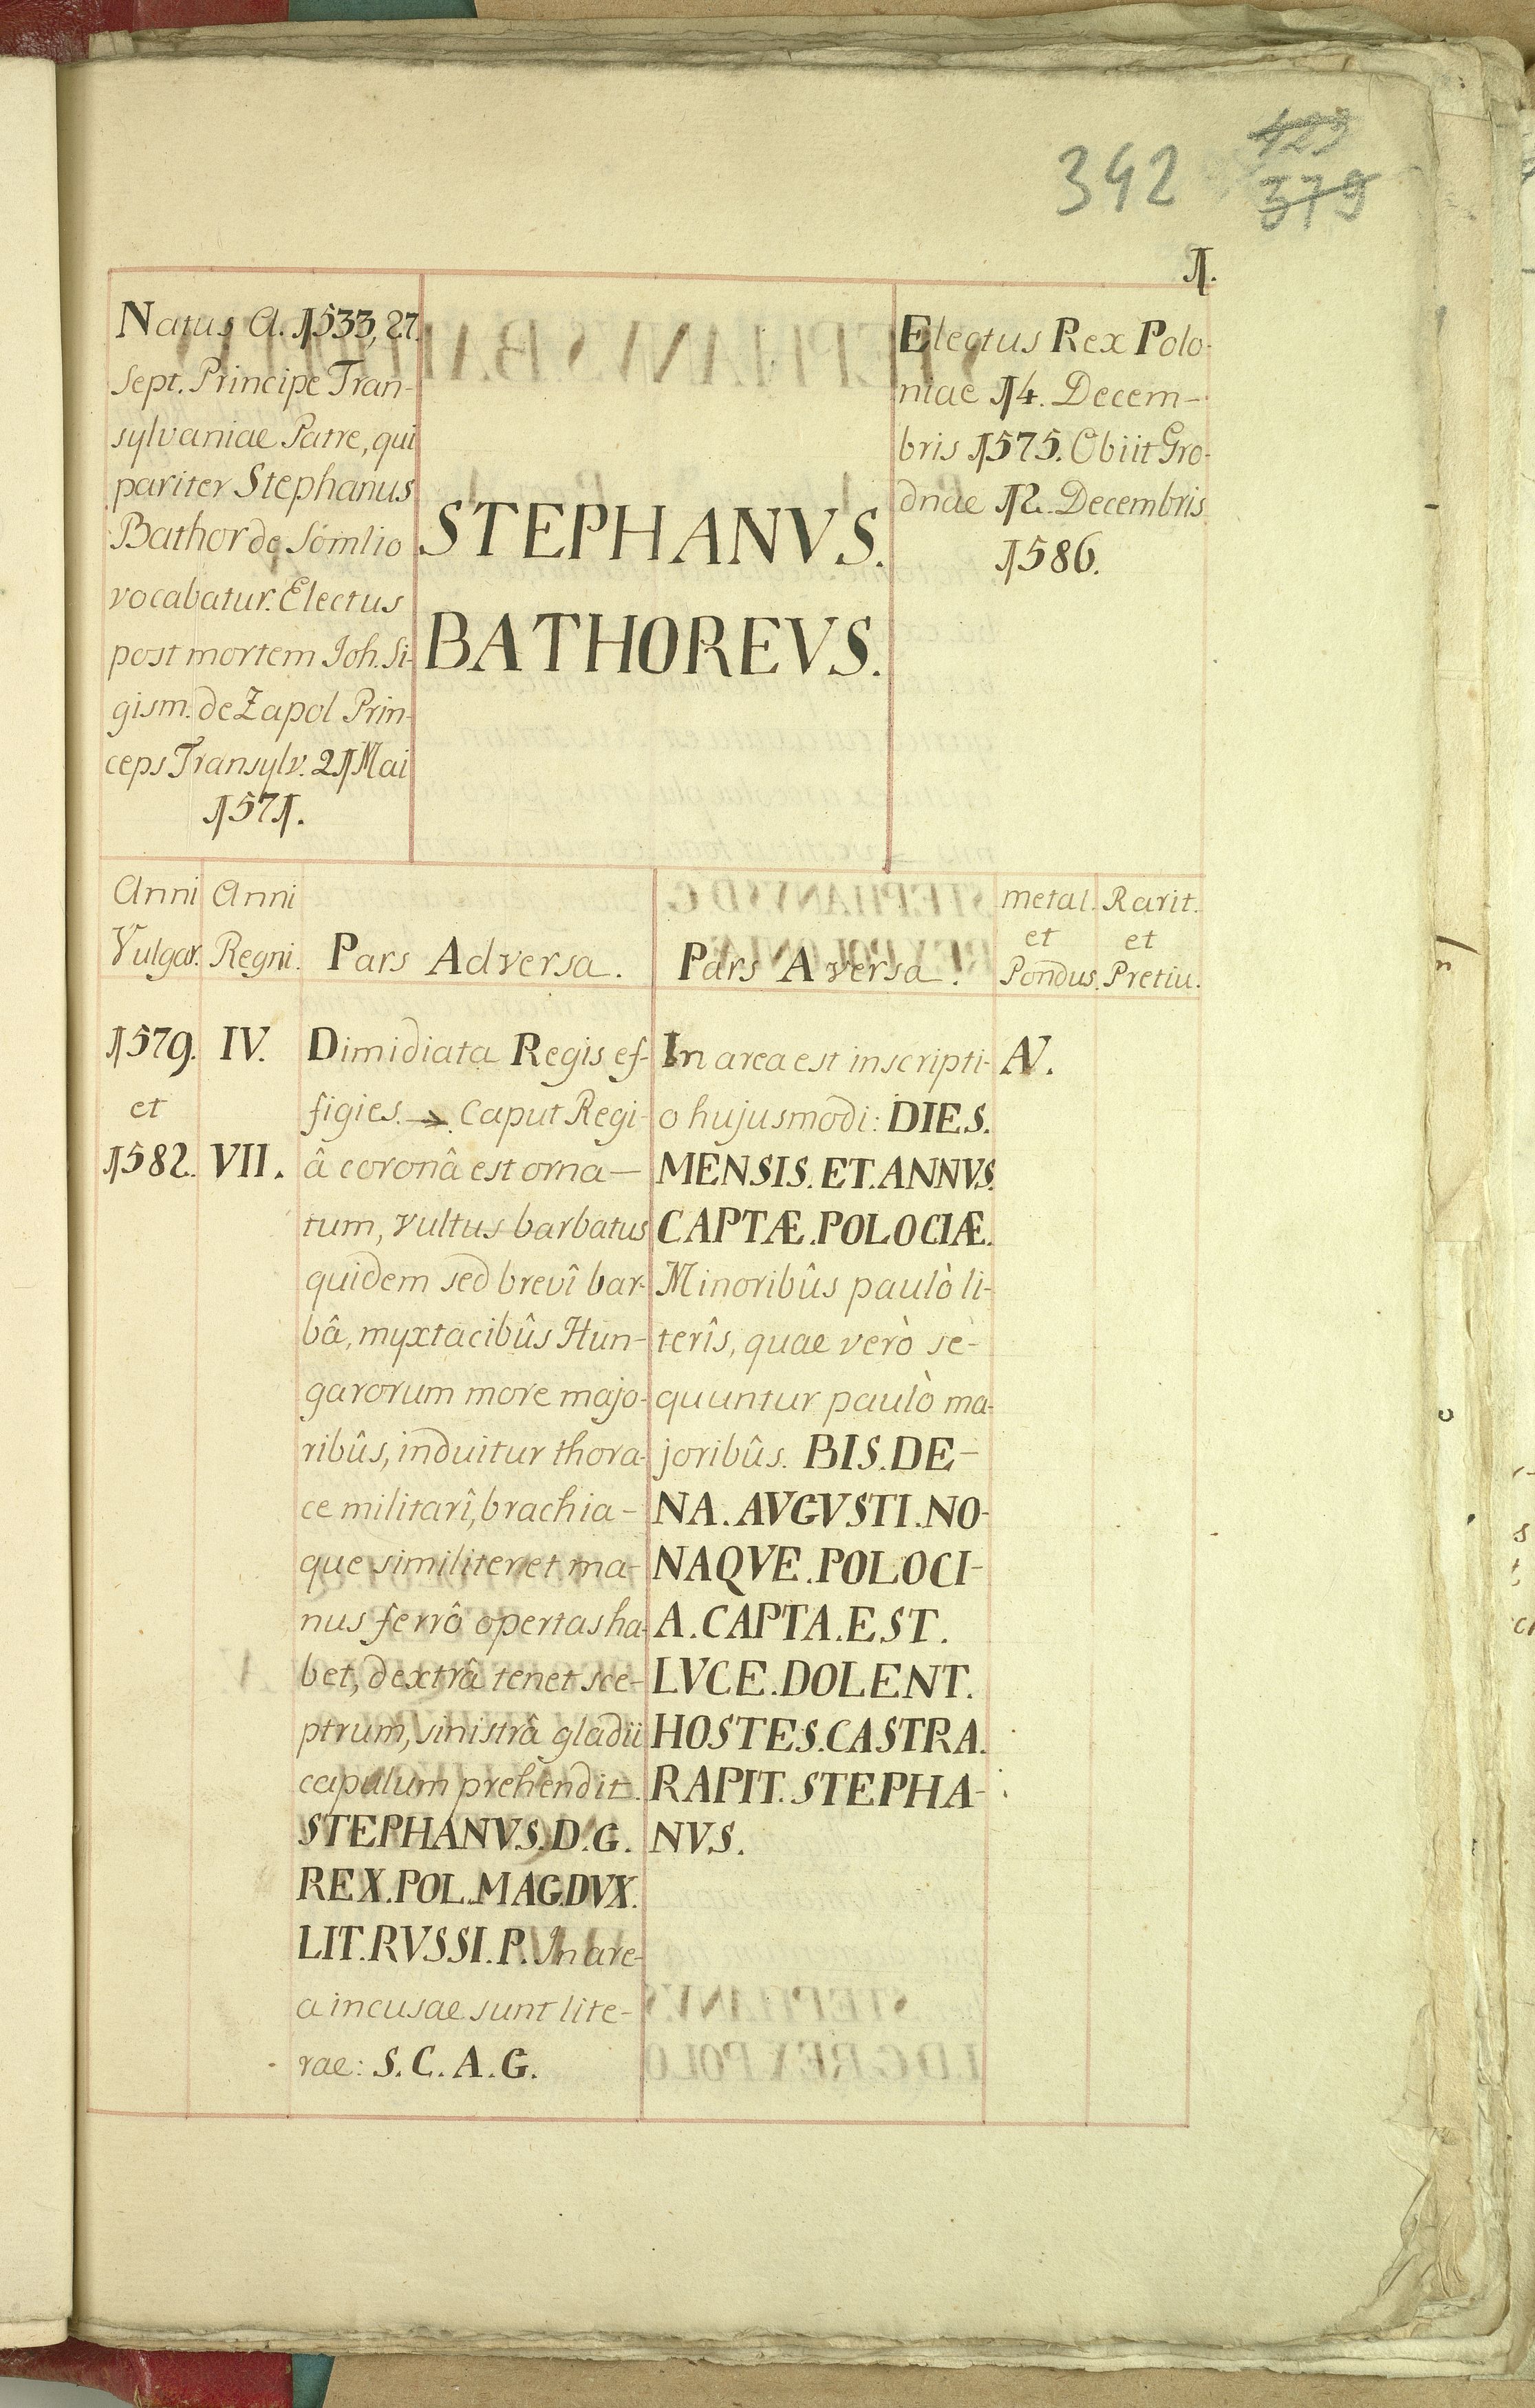 342
423
379
1.
Natus A. 1533, 27.
Sept. Principe Tran-
sylvaniae Patre, qui
pariter Stephanus
Bathor de Somlio
vocabatur. Electus
post mortem Joh. Si-
gism. de Zapol Prin-
ceps Transylv. 21 Mai
1571.
STEPHANVS.
BATHOREVS.
Electus Rex Polo-
niae 14. Decem-
bris 1575. Obiit Gro-
dnae 12. Decembris
1586.
Anni
Vulgar.
Anni
Regni.
Pars Adversa.
Pars Aversa.
metal.
et
Pondus.
Rarit.
et
Pretiu.
1579.
et
1582.
IV.
VII.
Dimidiata Regis ef-
figies. → Caput Regi-
â coronâ est orna-
tum, vultus barbatus
quidem sed brevî bar-
bâ, myxtacibûs Hun-
garorum more majo-
ribûs, induitur thora-
ce militarî, brachia-
que similiter et ma-
nus ferrô opertas ha-
bet, dextrâ tenet sce-
ptrum, sinistrâ gladii
capulum prehendit.
STEPHANVS. D. G.
REX. POL. MAG. DVX.
LIT. RVSSI. P. In are-
a incusae sunt lite-
rae: S. C. A. G.
In area est inscripti-
o hujusmodi: DIES.
MENSIS. ET. ANNVS.
CAPTÆ. POLOCIÆ.
Minoribûs paulò li-
terîs, quae verò se-
quuntur paulò ma-
joribûs. BIS. DE-
NA. AVGVSTI. NO-
NAQVE. POLOCI-
A. CAPTA. EST.
LVCE. DOLENT.
HOSTES. CASTRA.
RAPIT. STEPHA-
NVS.
AV.